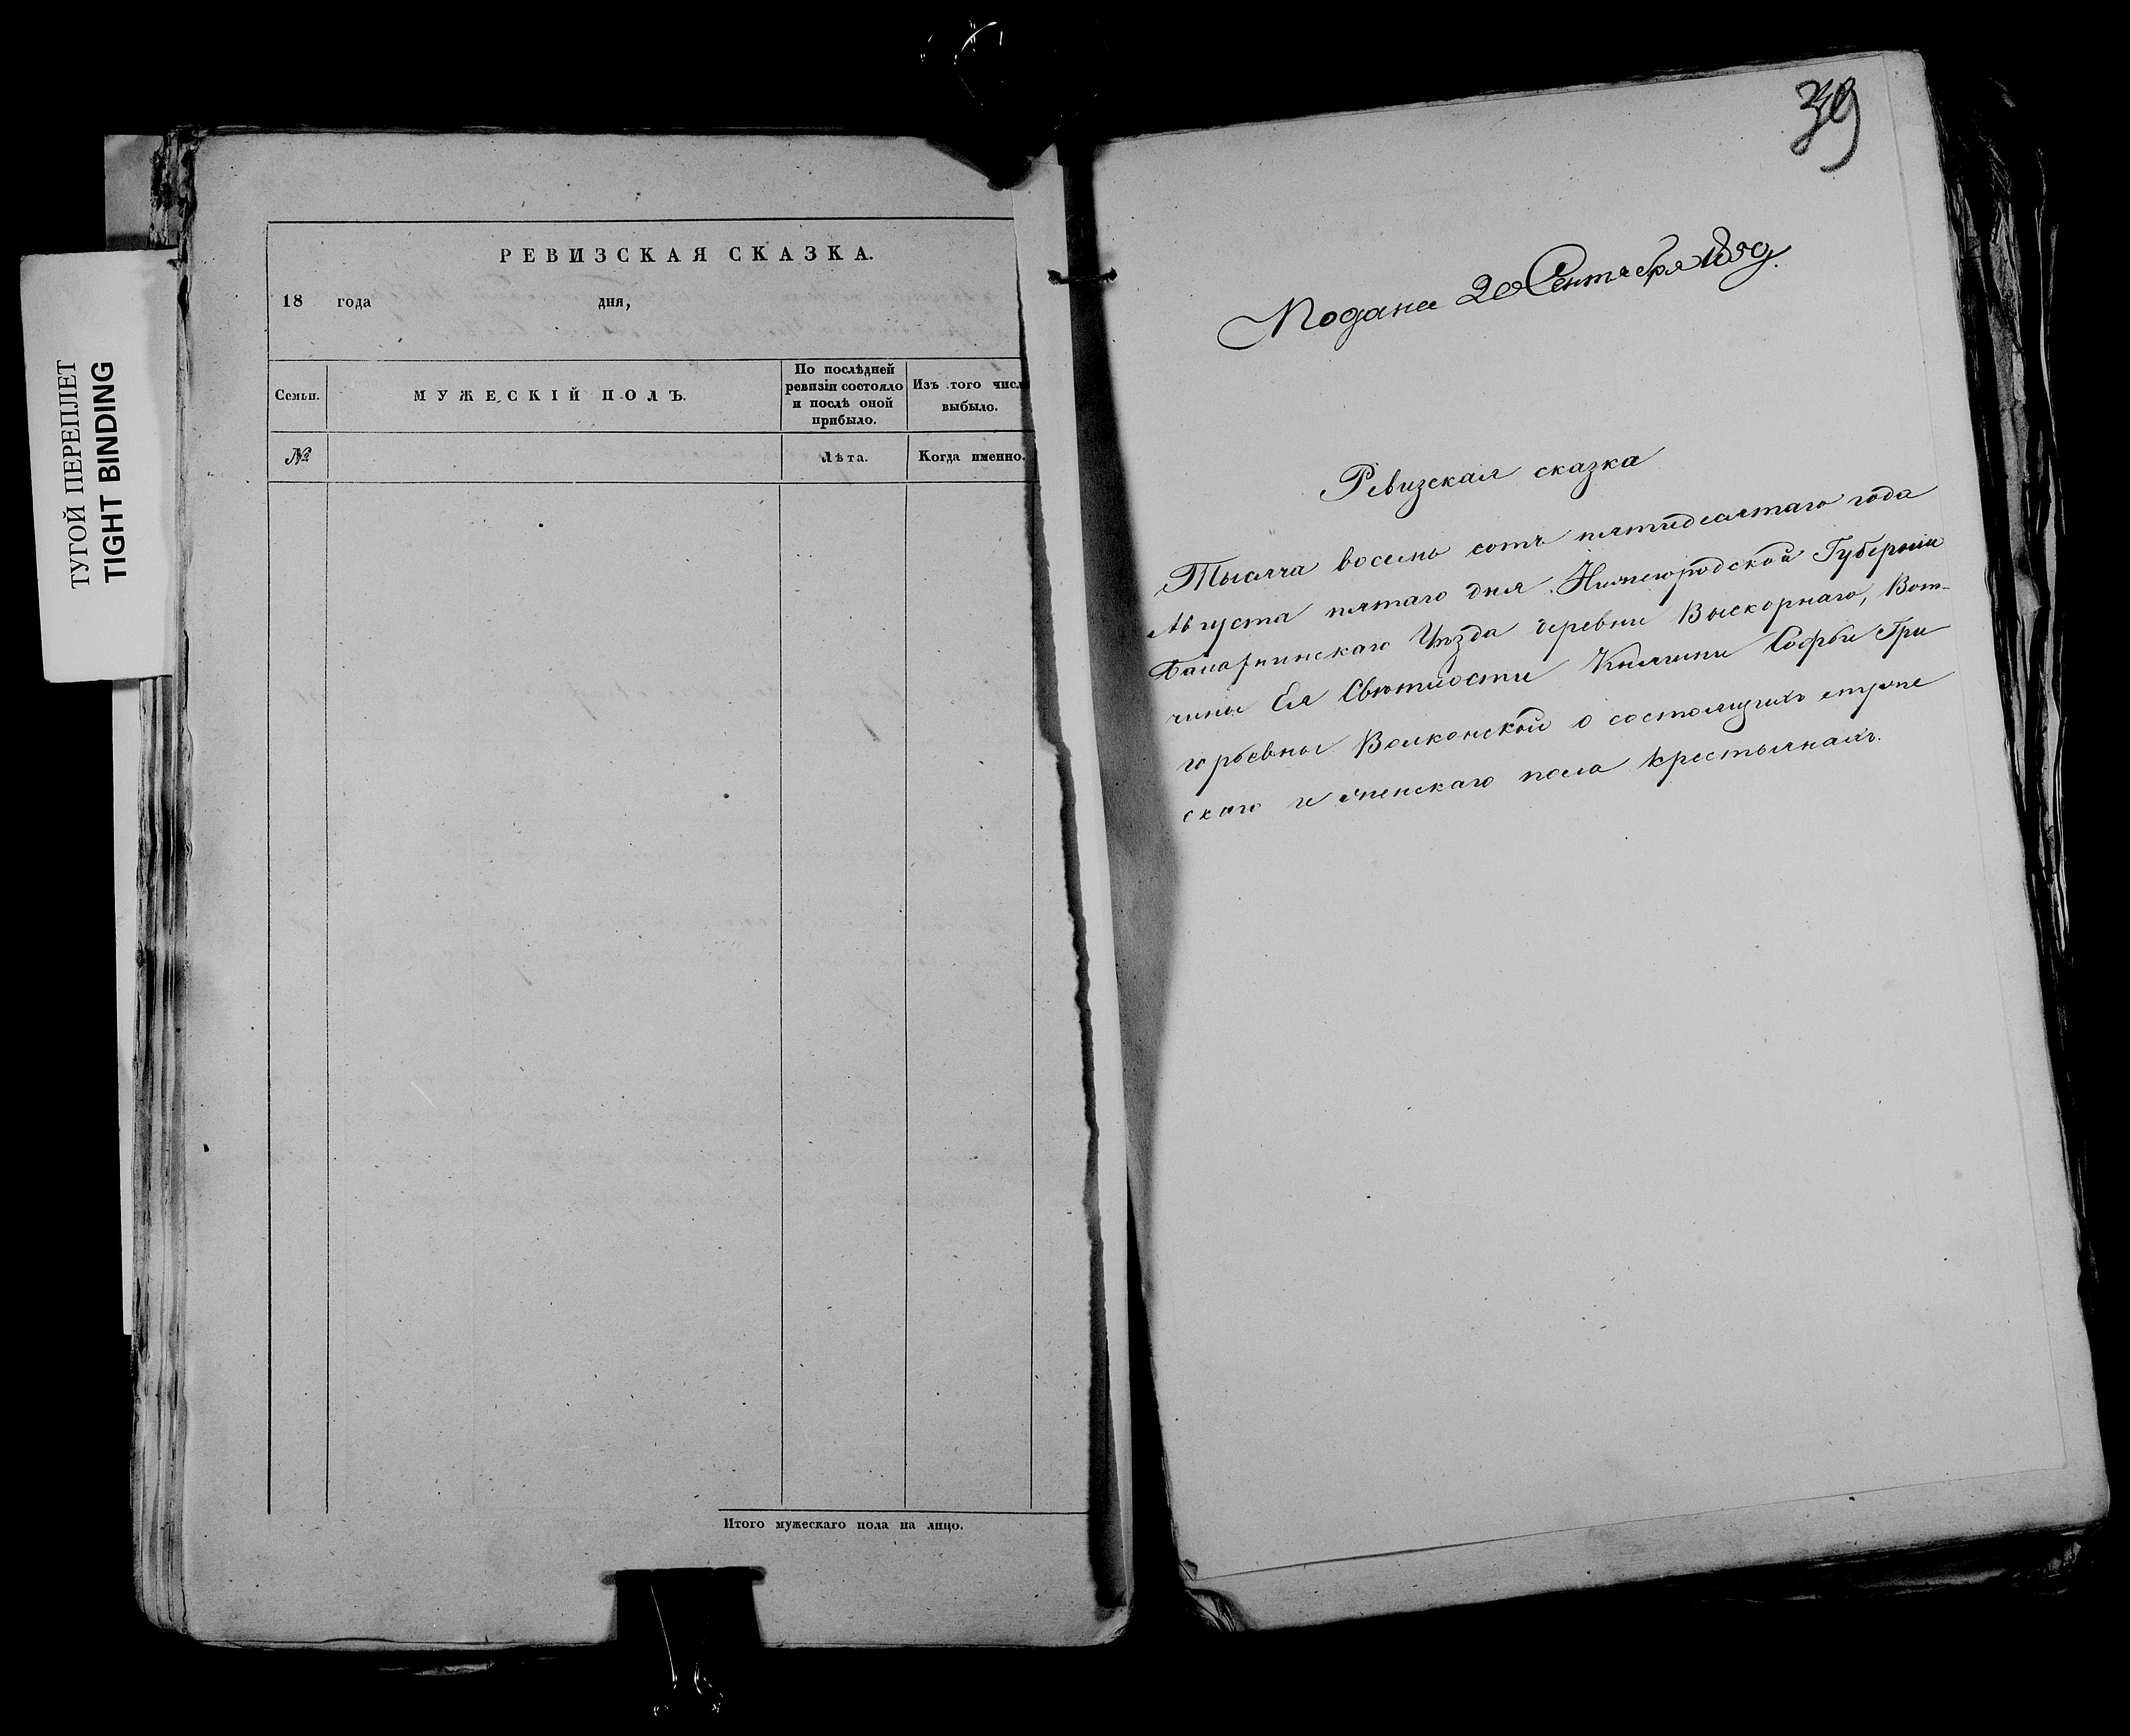 ТУГОЙ ПЕРЕПЛЕТ
TIGHT BINDING
РЕВИЗСКАЯ СКАЗКА.
18 года дня,
Семьи.
МУЖЕСКІЙ ПОЛЪ.
По послѣдней
ревизіи состояло
и послѣ оной
прибыло.
Изъ того числ
выбыло.
№
Лѣта.
Когда именно.
Итого мужескаго пола на лицо.
39
Подана 20 Сентября 1850 г.
Ревизская сказка
Тысяча восемь сотъ пятидесятаго года
Августа пятаго дня Нижегородской Губерніи
Уѣзда деревни Выскорнаго, Вот-
чины Ея Свѣтлости Княгини Софьи Гри
горьевны Волконской о состоящихъ мужe
скаго и женскаго пола крестьянахъ.